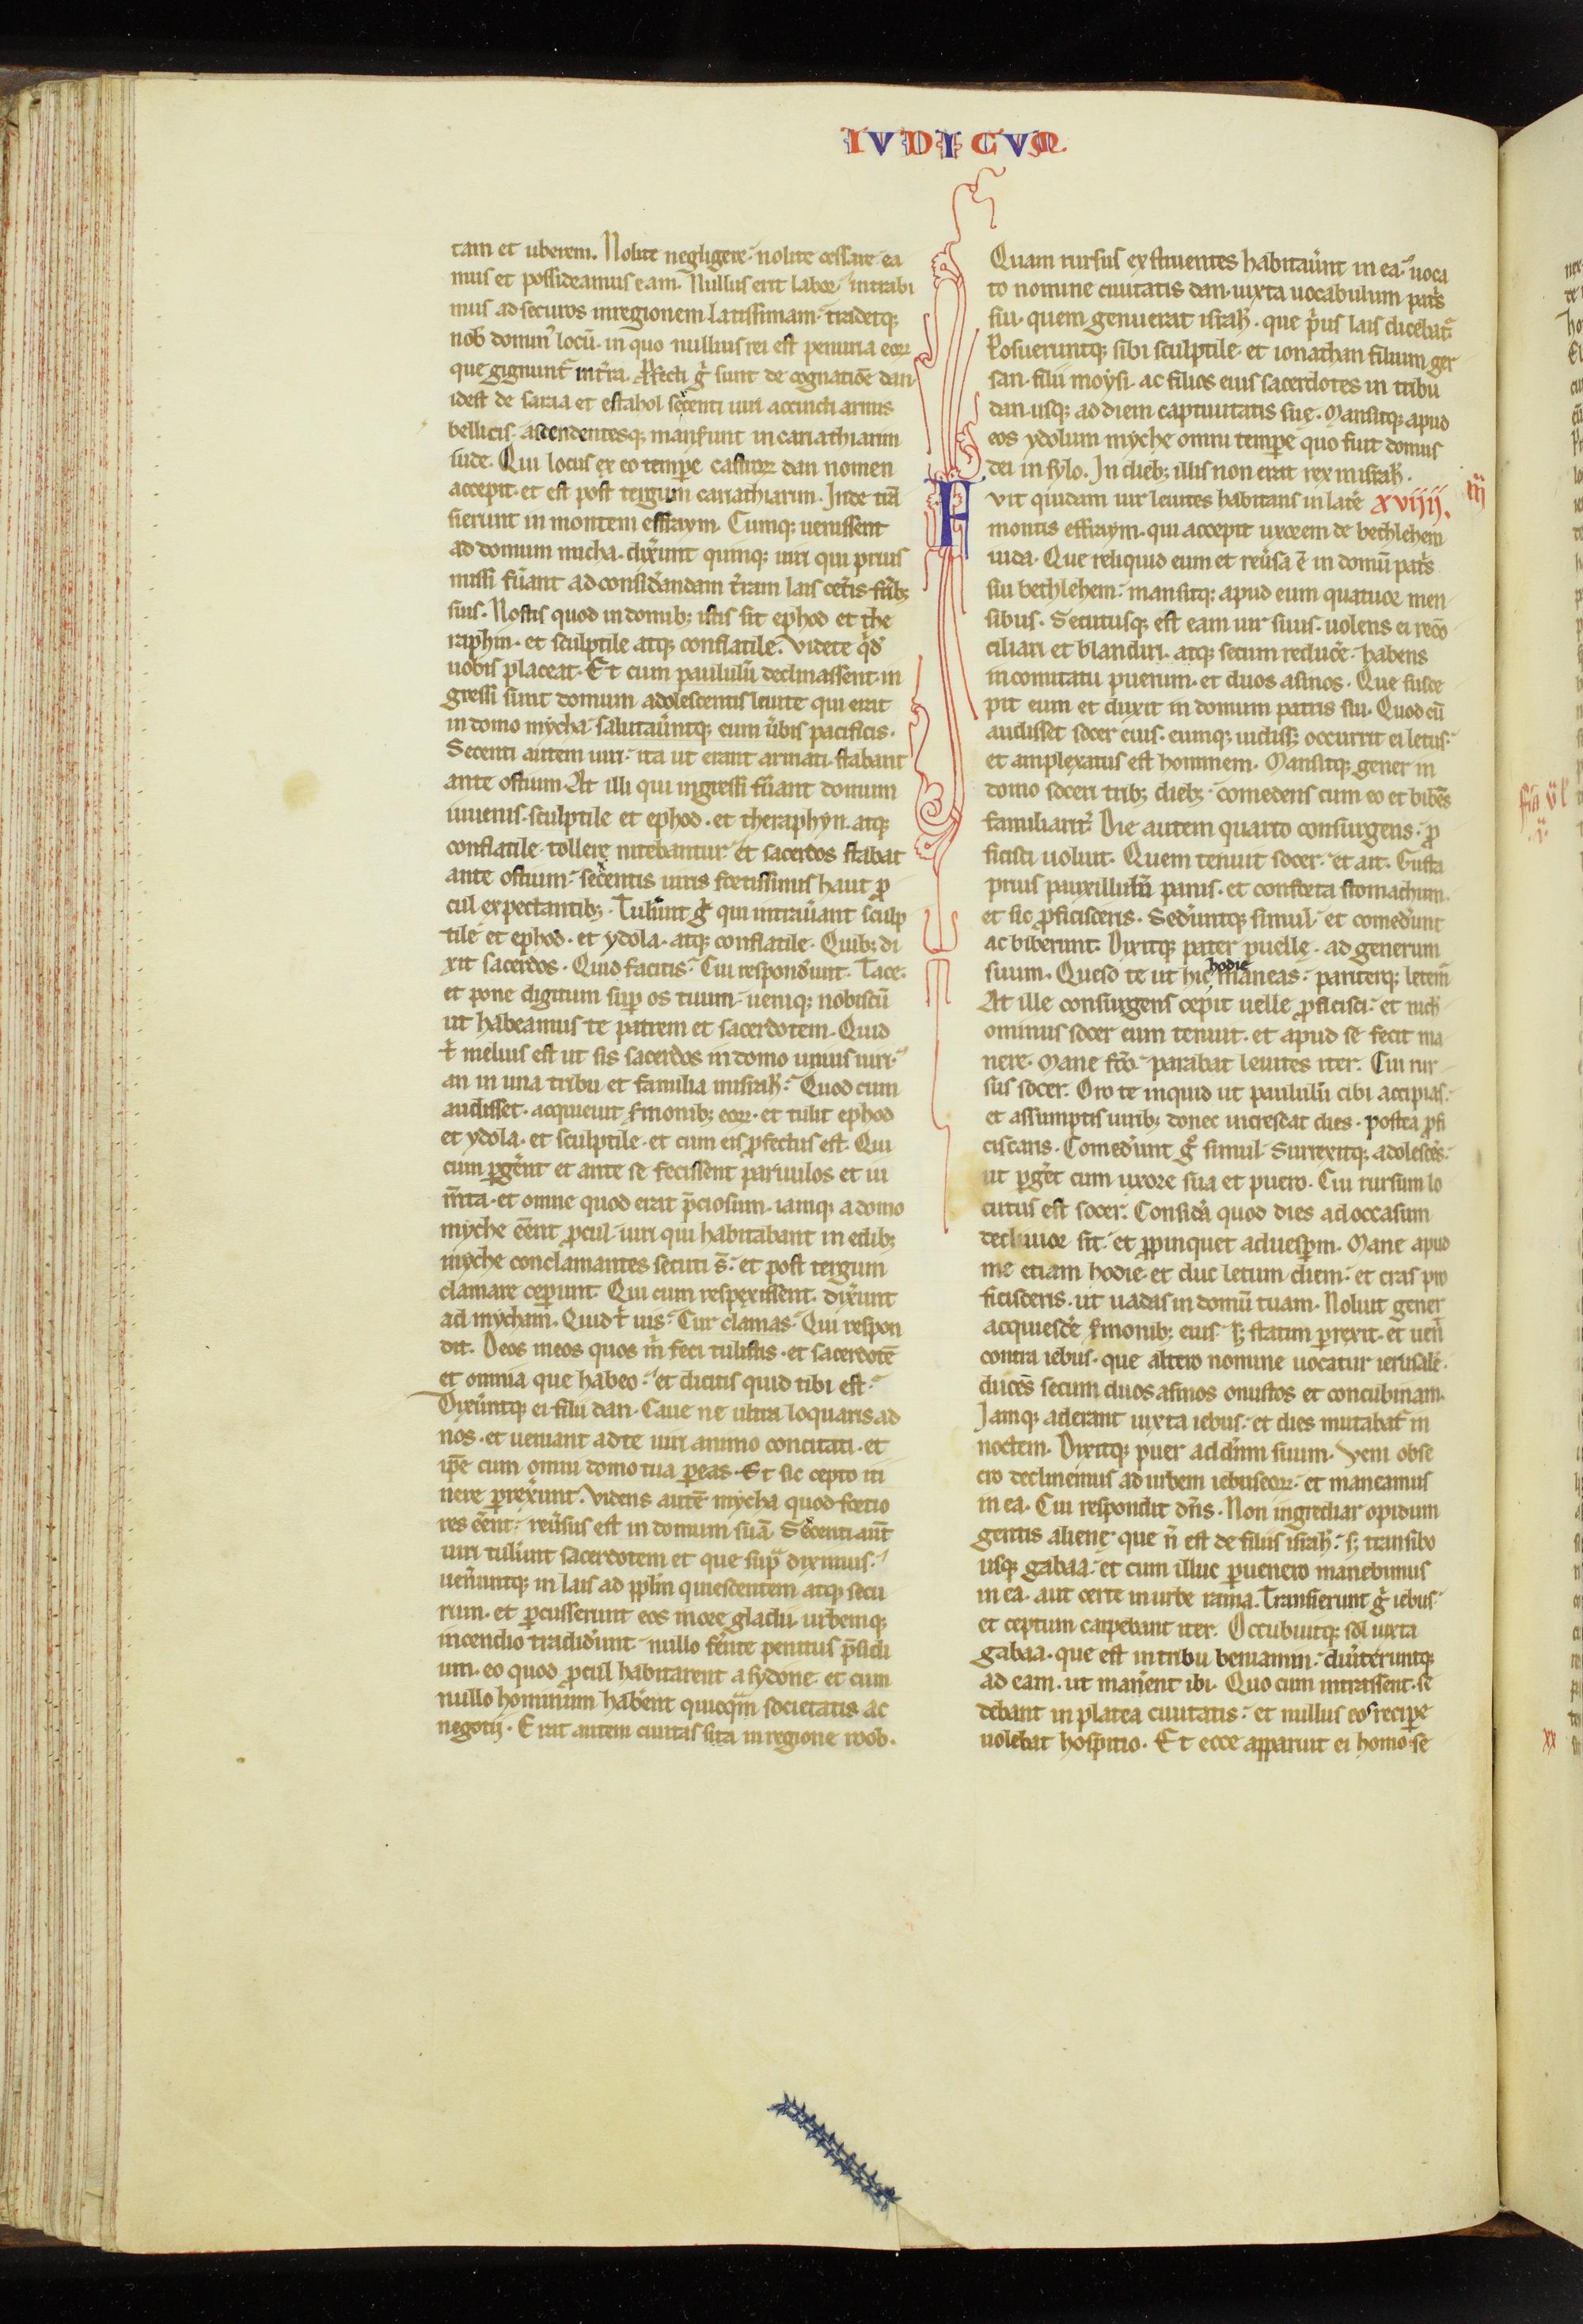 IVDICVM
tam et uberem. Nolite negligere. nolite cessare. ea
mus et possideamus eam. Nullus erit labor. intrabi
mus ad securos in regionem latissimam. tradetq;
nob̄ domin᷒ locū. in quo nullius rei est penuria eoꝝ
que gignunt᷑ in tr̄ra. Profecti gͦ sunt de cognatiōe dan
idest de saraa et estahol secenti uiri accincti armis
bellicis. ascendentesq; manserunt in cariathiarim
iude. Qui locus ex eo tempore castroꝝ dan nomen
accepit. et est post tergum cariathiarim. Inde trā
sierunt in montem effraym. Cumq; uenissent
ad domum micha. dix̄unt quinq; uiri qui prius
missi fūant ad considerandam t̄ram lais cet̄is fr̄ib;
suis. Nostis quod in domib; istis sit ephod et the
raphin. et sculptile atq; conflatile. Videte qͥd
uobis placeat. Et cum paululū declinassent. in
gressi sunt domum adolescentis leuite qui erat
in domo mycha. salutaūntq; eum ūbis pacificis.
Secenti autem uiri. ita ut erant armati. stabant
ante ostium. At illi qui ingressi fūant domum
iuuenis. sculptile et ephod. et theraphyn. atq;
conflatile. tollere nitebantur. et sacerdos stabat
ante ostium. secentis uiris fortissimis haut ꝓ
cul expectantib;. Tulūnt gͦ qui intraūant sculp
tile et ephod. et ydola. atq; conflatile. Quib; di
xit sacerdos. Quid facitis. Cui respond̄unt. Tace.
et pone digitum suꝑ os tuum. ueniq; nobiscū
ut habeamus te patrem et sacerdotem. Quid
t͛ melius est ut sis sacerdos in domo unius uiri.
an in una tribu et familia in israh̄. Quod cum
audisset. acquieuit s̄monib; eoꝝ. et tulit ephod
et ydola. et sculptile. et cum eis ꝓfectus est. Qui
cum ꝑgent et ante se fecissent paruulos et iu
m̄ta. et omne quod erat p̄ciosum. iamq; a domo
myche eēnt ꝓcul. uiri qui habitabant in edib;
myche conclamantes secuti s̄. et post tergum
clamare ceꝑunt. Qui cum respexissent. dix̄unt
ad mycham. Quid t͛ uis. Cur clamas. Qui respon
dit. Deos meos quos m̄ feci tulistis. et sacerdotē
et omnia que habeo. et dicitis quid tibi est.
Dix̄untq; ei filii dan. Caue ne ultra loquaris ad
nos. et ueniant ad te uiri animo concitati. et
ip̄e cum omni domo tua ꝑeas. Et sic cepto iti
nere ꝑrex̄unt. Videns autē mycha quod fortio
res eēnt. reūsus est in domum suā. Secenti aūt
uiri tul̄unt sacerdotem et que supͣ diximus.
uen̄untq; in lais ad pp̄lm quiescentem atq; secu
rum. et ꝑcusserunt eos more gladii. urbemq;
incendio tradid̄unt. nullo fēnte penitus p̄sidi
um. eo quod ꝓcul habitarent a sydone. et cum
nullo hominum hab̄ent quicqͣm societatis ac
negotij. Erat autem ciuitas sita in regione roob.
Quam rursus exstruentes habitaūnt in ea. uoca
to nomine ciuitatis dan. iuxta uocabulum pat͛s
sui. quem genuerat israh̄. que p͛us lais dicebat᷑.
Posueruntq; sibi sculptile. et ionathan filium ger
san. filii moysi. ac filios eius sacerdotes in tribu
dan. usq; ad diem captiuitatis sue. Mansitq; apud
eos ydolum myche omni temꝑe quo fuit domus
dei in sylo. In dieb; illis non erat rex in israh̄.
FVit quidam uir leuites habitans in lat͛e XVIIIJ.
montis effraym. qui accepit uxorem de bethlehem
iuda. Que reliquid eum et reūsa ē in domū pat͛s
sui bethlehem. mansitq; apud eum quatuor men
sibus. Secutusq; est eam uir suus. uolens ei recō
ciliari et blandiri. atq; secum reduc͛e. habens
in comitatu puerum. et duos asinos. Que susce
pit eum et duxit in domum patris sui. Quod cū
audisset socer eius. eumq; uidiss; occurrit ei letus.
et amplexatus est hominem. Mansitq; gener in
domo soceri trib; dieb;. comedens cum eo et bibēs
familiarit͛. Die autem quarto consurgens. ꝓ
ficisci uoluit. Quem tenuit socer. et ait. Gusta
prius pauxillulū panis. et conforta stomachum.
et sic ꝓficisceris. Sed̄untq; simul. et comed̄unt
ac biberunt. Dixitq; pater puelle. ad generum
suum. Queso te ut hic hodie maneas. pariterq; letem̄
At ille consurgens cepit uelle ꝓficisci. et nich̄
ominus socer eum tenuit. et apud se fecit ma
nere. Mane fc̄o. parabat leuites iter. Cui rur
sus socer. Oro te inquid ut paululū cibi accipias.
et assumptis uirib; donec increscat dies. postea ꝓfi
ciscaris. Comed̄unt gͦ simul. Surrexitq; adolescēs.
ut ꝑg͛et cum uxore sua et puero. Cui rursum lo
cutus est socer. Considͣ quod dies ad occasum
decliuior sit. et ꝓpinquet ad uesꝑm. Mane apud
me etiam hodie. et duc letum diem. et cras pro
ficisceris. ut uadas in domū tuam. Noluit gener
acquiesc͛e s̄monib; eius. s; statim ꝑrexit. et uen̄
contra iebus. que altero nomine uocatur ierusalē.
ducēs secum duos asinos onustos et concubinam.
Iamq; aderant iuxta iebus. et dies mutabat᷑ in
noctem. Dixitq; puer ad dn̄m suum. Veni obse
cro declinemus ad urbem iebuseoꝝ. et maneamus
in ea. Cui respondit dn̄s. Non ingrediar opidum
gentis aliene. que n̄ est de filiis israh̄. s; transibo
usq; gabaa. et cum illuc ꝑuenero manebimus
in ea. aut certe in urbe rama. Transierunt gͦ iebus.
et ceptum carpebant iter. Occubuitq; sol iuxta
gabaa. que est in tribu beniamin. diūteruntq;
ad eam. ut man͛ent ibi. Quo cum intrassent. se
debant in platea ciuitatis. et nullus eos reciꝑe
uolebat hospitio. Et ecce apparuit ei homo. se